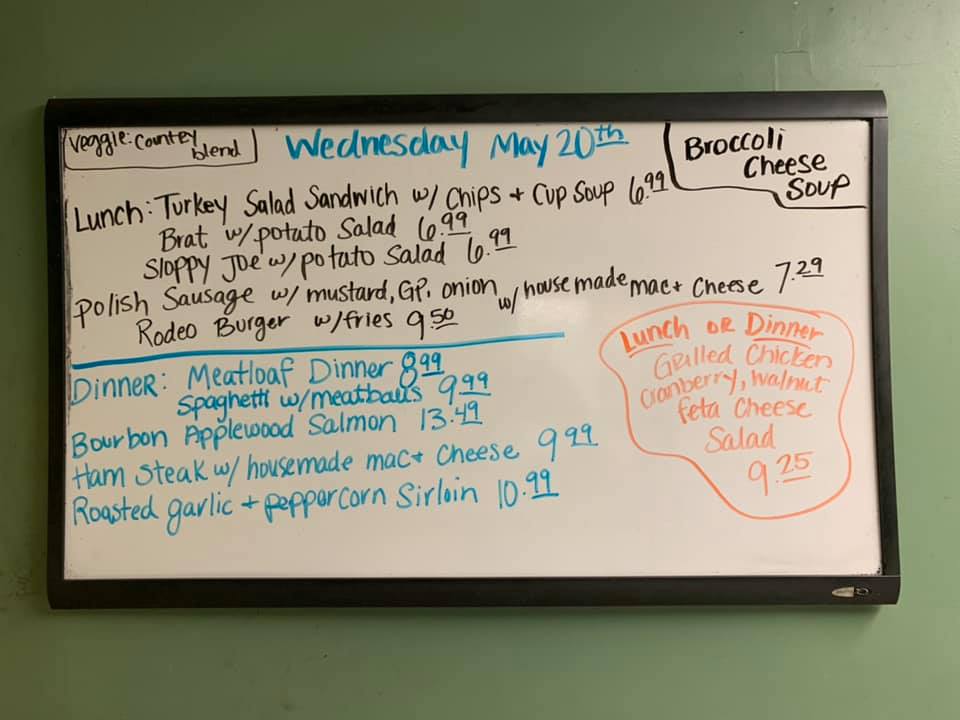 Veggie: Countey
blend
Wednesday May 20th
Broccoli
Cheese
Soup
Lunch: Turkey Salad Sandwich w/ Chips + Cup Soup 6.99
Brat w/ potato Salad 6.99
Sloppy Joe w/ potato Salad 6.99
Polish Sausage w/ mustard, GP, onion w/ housemade mac + Cheese 7.29
Rodeo Burger w/fries 9.50
Dinner: Meatloaf Dinner 8.99
Spaghetti w/meatballs 9.99
Bourbon Applewood Salmon 13.49
Ham Steak w/ housemade mac + Cheese 9.99
Roasted garlic + pepparcorn Sirloin 10.99
Lunch or Dinner
Grilled Chicken
Cranberry, Walnut
feta Cheese
Salad
9.25